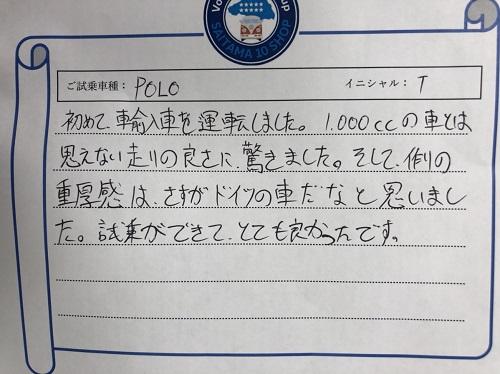 Vo up
SAITAMA 10 SHOP
ご試乗車種： POLO イニシャル： T
初めて、車輸入車を運転しました。1.000ccの車とは
思えない走りの良さに、驚きました。そして、作りの
重厚感は、さすがドイツの車だなと思いまし
た。試乗ができて、とても良かったです。